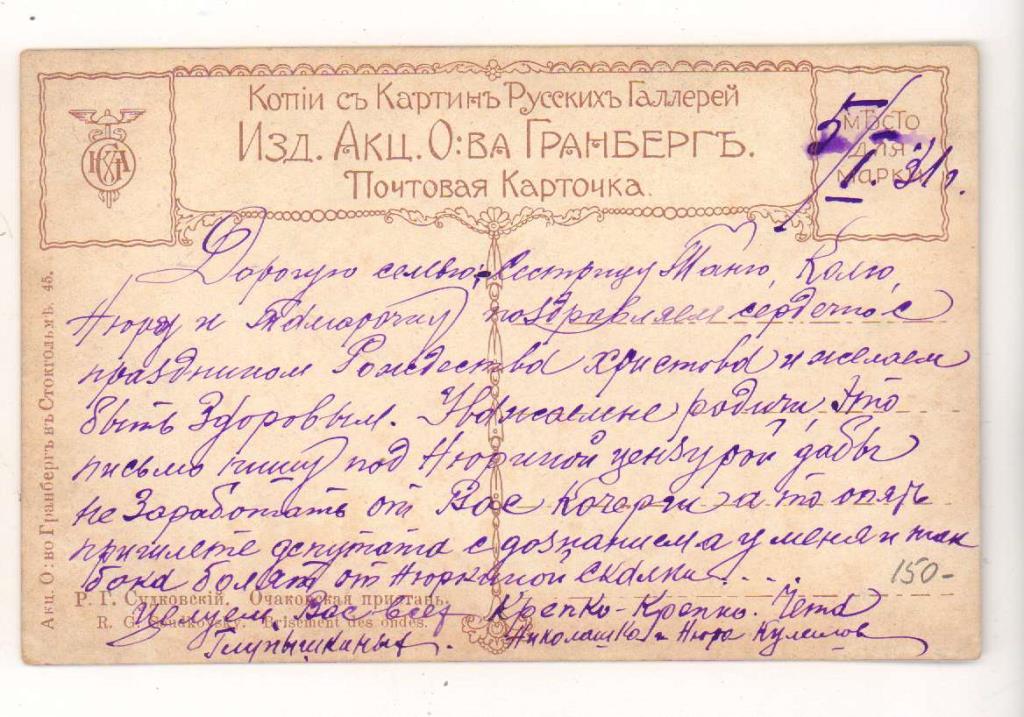 Копіи съ Картинъ Русскихъ Галлерей
Изд. Акц. О:ва Гранбергъ.
Почтовая Карточка.
Мѣсто
для
марки
I. 31 г.
Дорогую семью, Сестрицу Таню, Колю,
Нюру и Тамарочку поздравляем сердечно с
праздником Рождества христова и желаем
быть Здоровым. Уважаемые родичи, Это
письмо пишу под Нюриной цензурой дабы
не Заработать от Вас кочерги а то опять
пришлете депутата с дознанием а у меня и так
бока болят от Нюркиной Скалки....
Целуем Вас всех Крепко-Крепко. Чета
Глупышкиных. Николашка и Нюра
Р. Г. Судковскій. Очаковская пристань.
R. G. Soudkovsky. Brisement des ondes.
Акц. О:во Гранбергъ въ Стокгольмѣ. 45.
150-